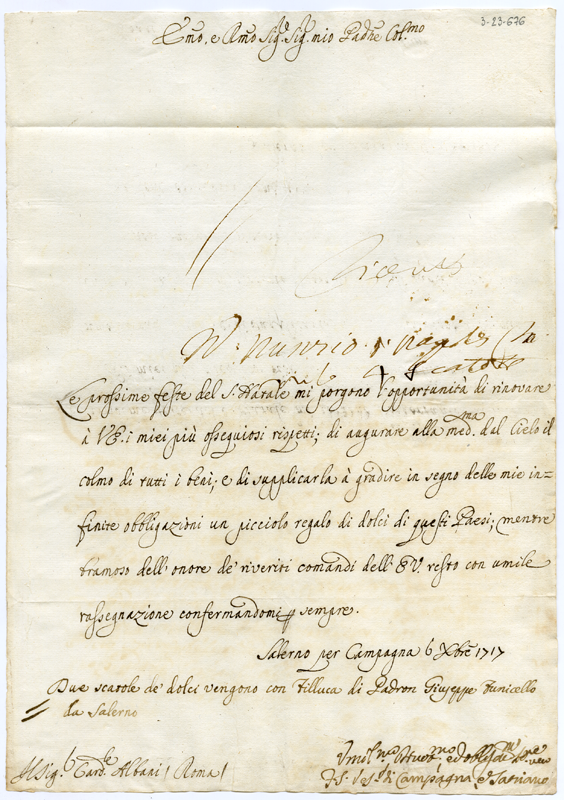 3-23-676
Emo, e Rmo Sig.r Sig.r mio Padne Col.mo
Le prossime feste del S. Natale mi porgono l'opportunità di rinovare
à VE. i miei più ossequiosi rispetti; di augurare alla med.ma dal Cielo il
colmo di tutti i beni; e di supplicarla à gradire in segno delle mie in=
finite obbligazioni un picciolo regalo di dolci di questi Paesi; mentre
bramoso dell'onore de' riveriti comandi dell'EV. resto con umile
rassegnazione confermandomi sempre.
Salerno per Campagna 6 Xbre 1717
Due scatole de' dolci vengono con filluca di Padron Giuseppe Funicello
da Salerno
Sig.r Card.le Albani / Roma /
F. S. Ves.o di Campagna, e Satriano